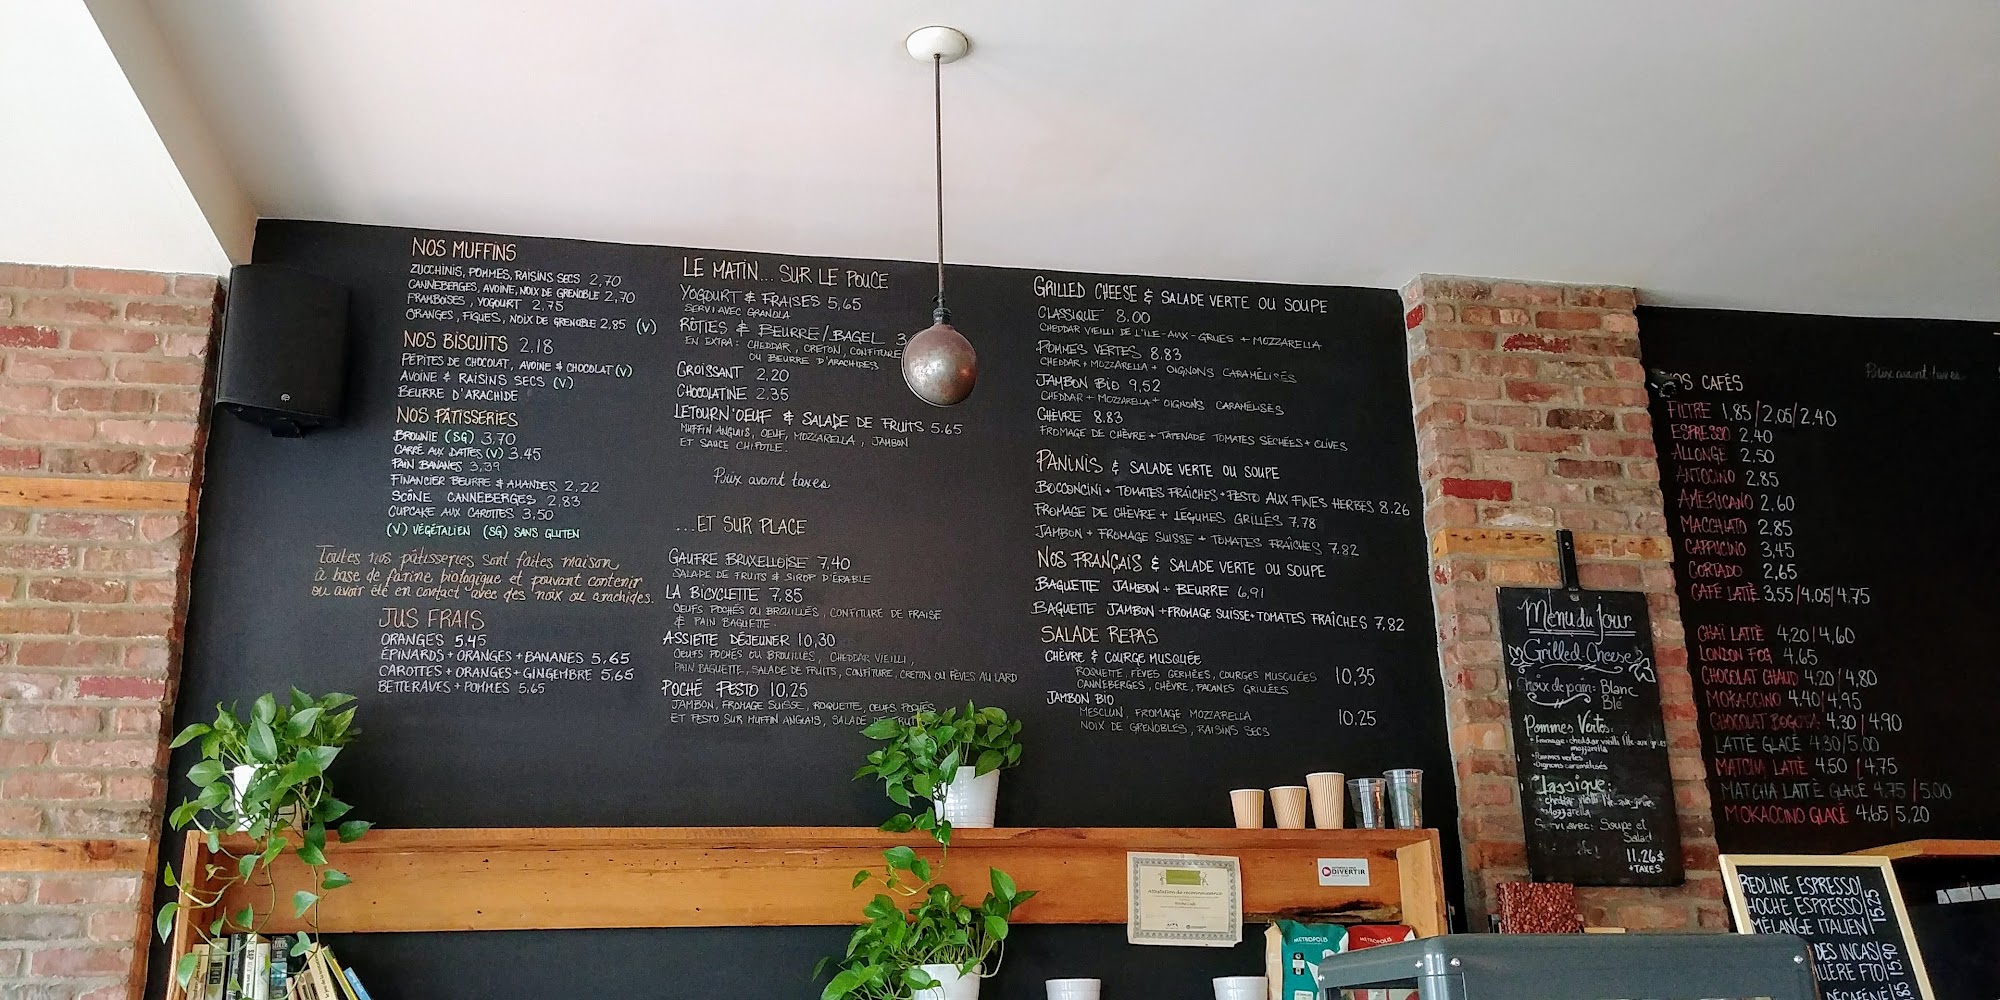 NOS MUFFINS
ZUCCHINIS, POMMES, RAISINS SECS 2,70
CANNEBERGES, AVOINE, NOIX DE GRENOBLE 2,70
FRAMBOISES, YOGOURT 2.75
ORANGES, FIGUES, NOIX DE GRENOBLE 2,85 (V)
NOS BISCUITS 2.18
PÉPITES DE CHOCOLAT, AVOINE & CHOCOLAT (V)
AVOINE & RAISINS SECS (V)
BEURRE D'ARACHIDE
NOS PÂTISSERIES
BROWNIE (SG) 3,70
CARRÉ AUX DATTES (V) 3.45
PAIN BANANES 3,39
FINANCIER BEURRE & AMANDES 2,22
SCÔNE CANNEBERGES 2,83
CUPCAKE AUX CAROTTES 3,50
(V) VÉGÉTALIEN (SG) SANS GLUTEN
Toutes nos pâtisseries sont faites maison
à base de farine biologique et pouvant contenir
ou avoir été en contact avec des noix ou arachides.
JUS FRAIS
ORANGES 5,45
ÉPINARDS + ORANGES + BANANES 5,65
CAROTTES + ORANGES + GINGEMBRE 5,65
BETTERAVES + POMMES 5.65
LE MATIN... SUR LE POUCE
YOGOURT & FRAISES 5,65
SERVI AVEC GRANOLA
RÔTIES & BEURRE/BAGEL 3
EN EXTRA: CHEDDAR, CRETON, CONFITURE
OU BEURRE D'ARACHIDES
CROISSANT 2,20
CHOCOLATINE 2,35
LETOURN'OEUF & SALADE DE FRUITS 5.65
MUFFIN ANGLAIS, OEUF, MOZZARELLA, JAMBON
ET SAUCE CHIPOTLE.
Prix avant taxes
...ET SUR PLACE
GAUFRE BRUXELLOISE 7,40
SALADE DE FRUITS & SIROP D'ÉRABLE
LA BICYCLETTE 7,85
OEUFS POCHÉS OU BROUILLÉS, CONFITURE DE FRAISE
& PAIN BAGUETTE.
ASSIETTE DÉJEUNER 10,30
OEUFS POCHÉS OU BROUILLÉS, CHEDDAR VIEILLI,
PAIN BAGUETTE, SALADE DE FRUITS, CONFITURE, CRETON OU FÈVES AU LARD
POCHÉ PESTO 10,25
JAMBON, FROMAGE SUISSE, ROQUETTE, OEUFS POCHÉS
ET PESTO SUR MUFFIN ANGLAIS, SALADE DE FRUITS
GRILLED CHEESE & SALADE VERTE OU SOUPE
CLASSIQUE 8.00
CHEDDAR VIEILLI DE L'ÎLE-AUX-GRUES + MOZZARELLA
POMMES VERTES 8.83
CHEDDAR + MOZZARELLA + OIGNONS CARAMÉLISÉS
JAMBON BIO 9,52
CHEDDAR + MOZZARELLA + OIGNONS CARAMÉLISÉS
CHÈVRE 8.83
FROMAGE DE CHÈVRE + TAPENADE TOMATES SÉCHÉES + OLIVES
PANINIS & SALADE VERTE OU SOUPE
BOCCONCINI + TOMATES FRAÎCHES + PESTO AUX FINES HERBES 8.26
FROMAGE DE CHÈVRE + LÉGUMES GRILLÉS 7.78
JAMBON + FROMAGE SUISSE + TOMATES FRAÎCHES 7.82
NOS FRANÇAIS & SALADE VERTE OU SOUPE
BAGUETTE JAMBON + BEURRE 6,91
BAGUETTE JAMBON + FROMAGE SUISSE + TOMATES FRAÎCHES 7,82
SALADE REPAS
CHÈVRE & COURGE MUSQUÉE
ROQUETTE, FÈVES GERMÉES, COURGES MUSQUÉES 10,35
CANNEBERGES, CHÈVRE, PACANES GRILLÉES
JAMBON BIO
MESCLUN, FROMAGE MOZZARELLA 10.25
NOIX DE GRENOBLES, RAISINS SECS
Menu du jour
Grilled-Cheese
Choix de pain: Blanc
Blé
Pommes Vertes:
Fromage: cheddar vieilli l'île-aux-grues
mozzarella
Pommes vertes
Oignons caramélisés
Classique:
cheddar vieilli l'île-aux-grues
Mozzarella
Servi avec: Soupe et
Salade
11.26$
+TAXES
Prix avant taxes
NOS CAFÉS
FILTRE 1,85/2,05/2,40
ESPRESSO 2,40
ALLONGÉ 2,50
ANTOCINO 2,85
AMERICANO 2,60
MACCHIATO 2,85
CAPPUCINO 3,45
CORTADO 2,65
CAFÉ LATTÈ 3.55/4.05/4.75
CHAÏ LATTÈ 4,20/4,60
LONDON FOG 4,65
CHOCOLAT CHAUD 4.20/4,80
MOKACCINO 4.40/4,95
CHOCOLAT BOGOTA 4.30/4,90
LATTÈ GLACÉ 4.30/5,00
MATCHA LATTÈ 4.50/4,75
MATCHA LATTÈ GLACÉ 4.75/5.00
MOKACCINO GLACÉ 4,65/5,20
Attestation de reconnaissance
DIVERTIR
METROPOLIS
METROPOLIS
REDLINE ESPRESSO
HOCHE ESPRESSO
MÉLANGE ITALIEN
15.25
DES INCAS
FTO
15,90
DÉCAFÉINÉ